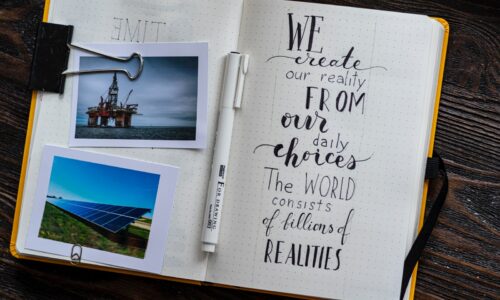 TIME
FOR DRAWING
WE
create
our reality
FROM
our
daily
choices
The WORLD
consists
of billions of
REALITIES